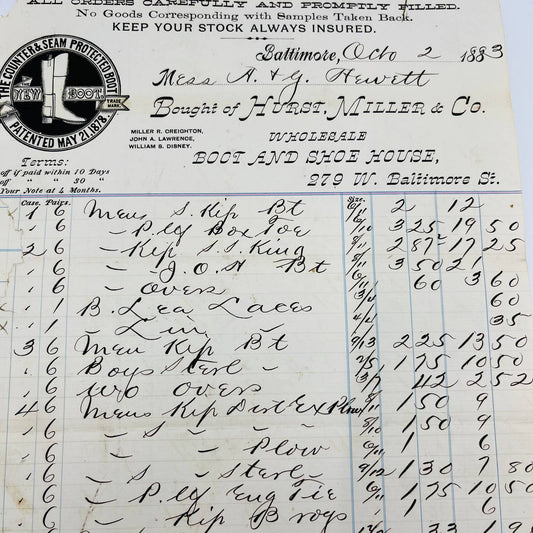 ALL ORDERS CAREFULLY AND PROMPTLY FILLED.
No Goods Corresponding with Samples Taken Back.
KEEP YOUR STOCK ALWAYS INSURED.
THE COUNTER & SEAM PROTECTED BOOT
NEW BOOT.
TRADE MARK.
PATENTED MAY 21, 1878.
Baltimore, Octo 2 1883
Mess A. & G. Hewett
Bought of HURST, MILLER & CO.
MILLER R. CREIGHTON,
JOHN A. LAWRENCE,
WILLIAM S. DISNEY.
WHOLESALE
BOOT AND SHOE HOUSE,
279 W. Baltimore St.
Terms:
off if paid within 10 Days
off " " 30 "
Your Note at 4 Months.
Case. Pairs. Size.
1 6 Mens S. Kip Bt 6/11 2 12
" 6 – P. leg Box Toe 6/10 3 25 19 50
2 6 – Kip S. S. King 2 87 17 25
" 6 – J. O. H Bt 6/11 3 50 21
" 6 – Overs 6/11 60 3 60
" 1 B. Lea Laces 60
" 1 – 35
3 6 Men Kip Bt 9/13 2 25 13 50
" 6 Boys Sterl – 2/5 1 75 10 50
" 6 w/o overs 3/7 42 2 52
4 6 Mens Kip Dirt Ex Plow 1 50 9
" 6 – S – – 1 50 9
" 6 – – Plow 6/11 1 6
" 6 – S – Sterl – 9/12 1 30 7 80
" 6 – P. leg Eng Tie 6/11 1 75 10 50
" 6 – Kip Brogs 1 6
33